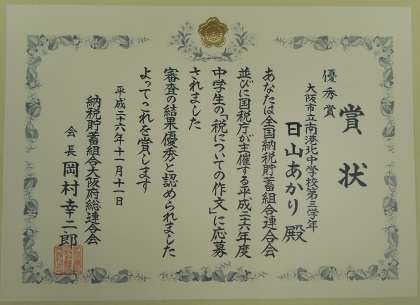 賞状
優秀賞
大阪市立南港北中学校第三学年
日山あかり殿
あなたは全国納税貯蓄組合連合会
並びに国税庁が主催する平成二十六年度
中学生の「税についての作文」に応募
されました
審査の結果優秀と認められました
よってこれを賞します
平成二十六年十一月十一日
納税貯蓄組合大阪府総連合会
会長 岡村幸二郎